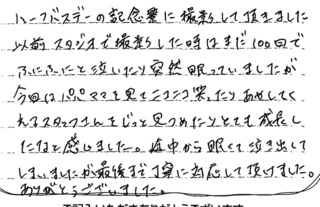 ハーフバスデーの記念に撮影して頂きました
以前スタジオで撮影した時はまだ100日で
ふにふにと泣いたり突然眠っていましたが
今回はパパママを見てニコニコ笑ったりあやしてく
れるスタッフさんをじっと見つめたりととても成長し
たなと感じました。途中から眠くて泣き出して
しまいましたが最後まで丁寧に対応して頂けました。
ありがとうございました。